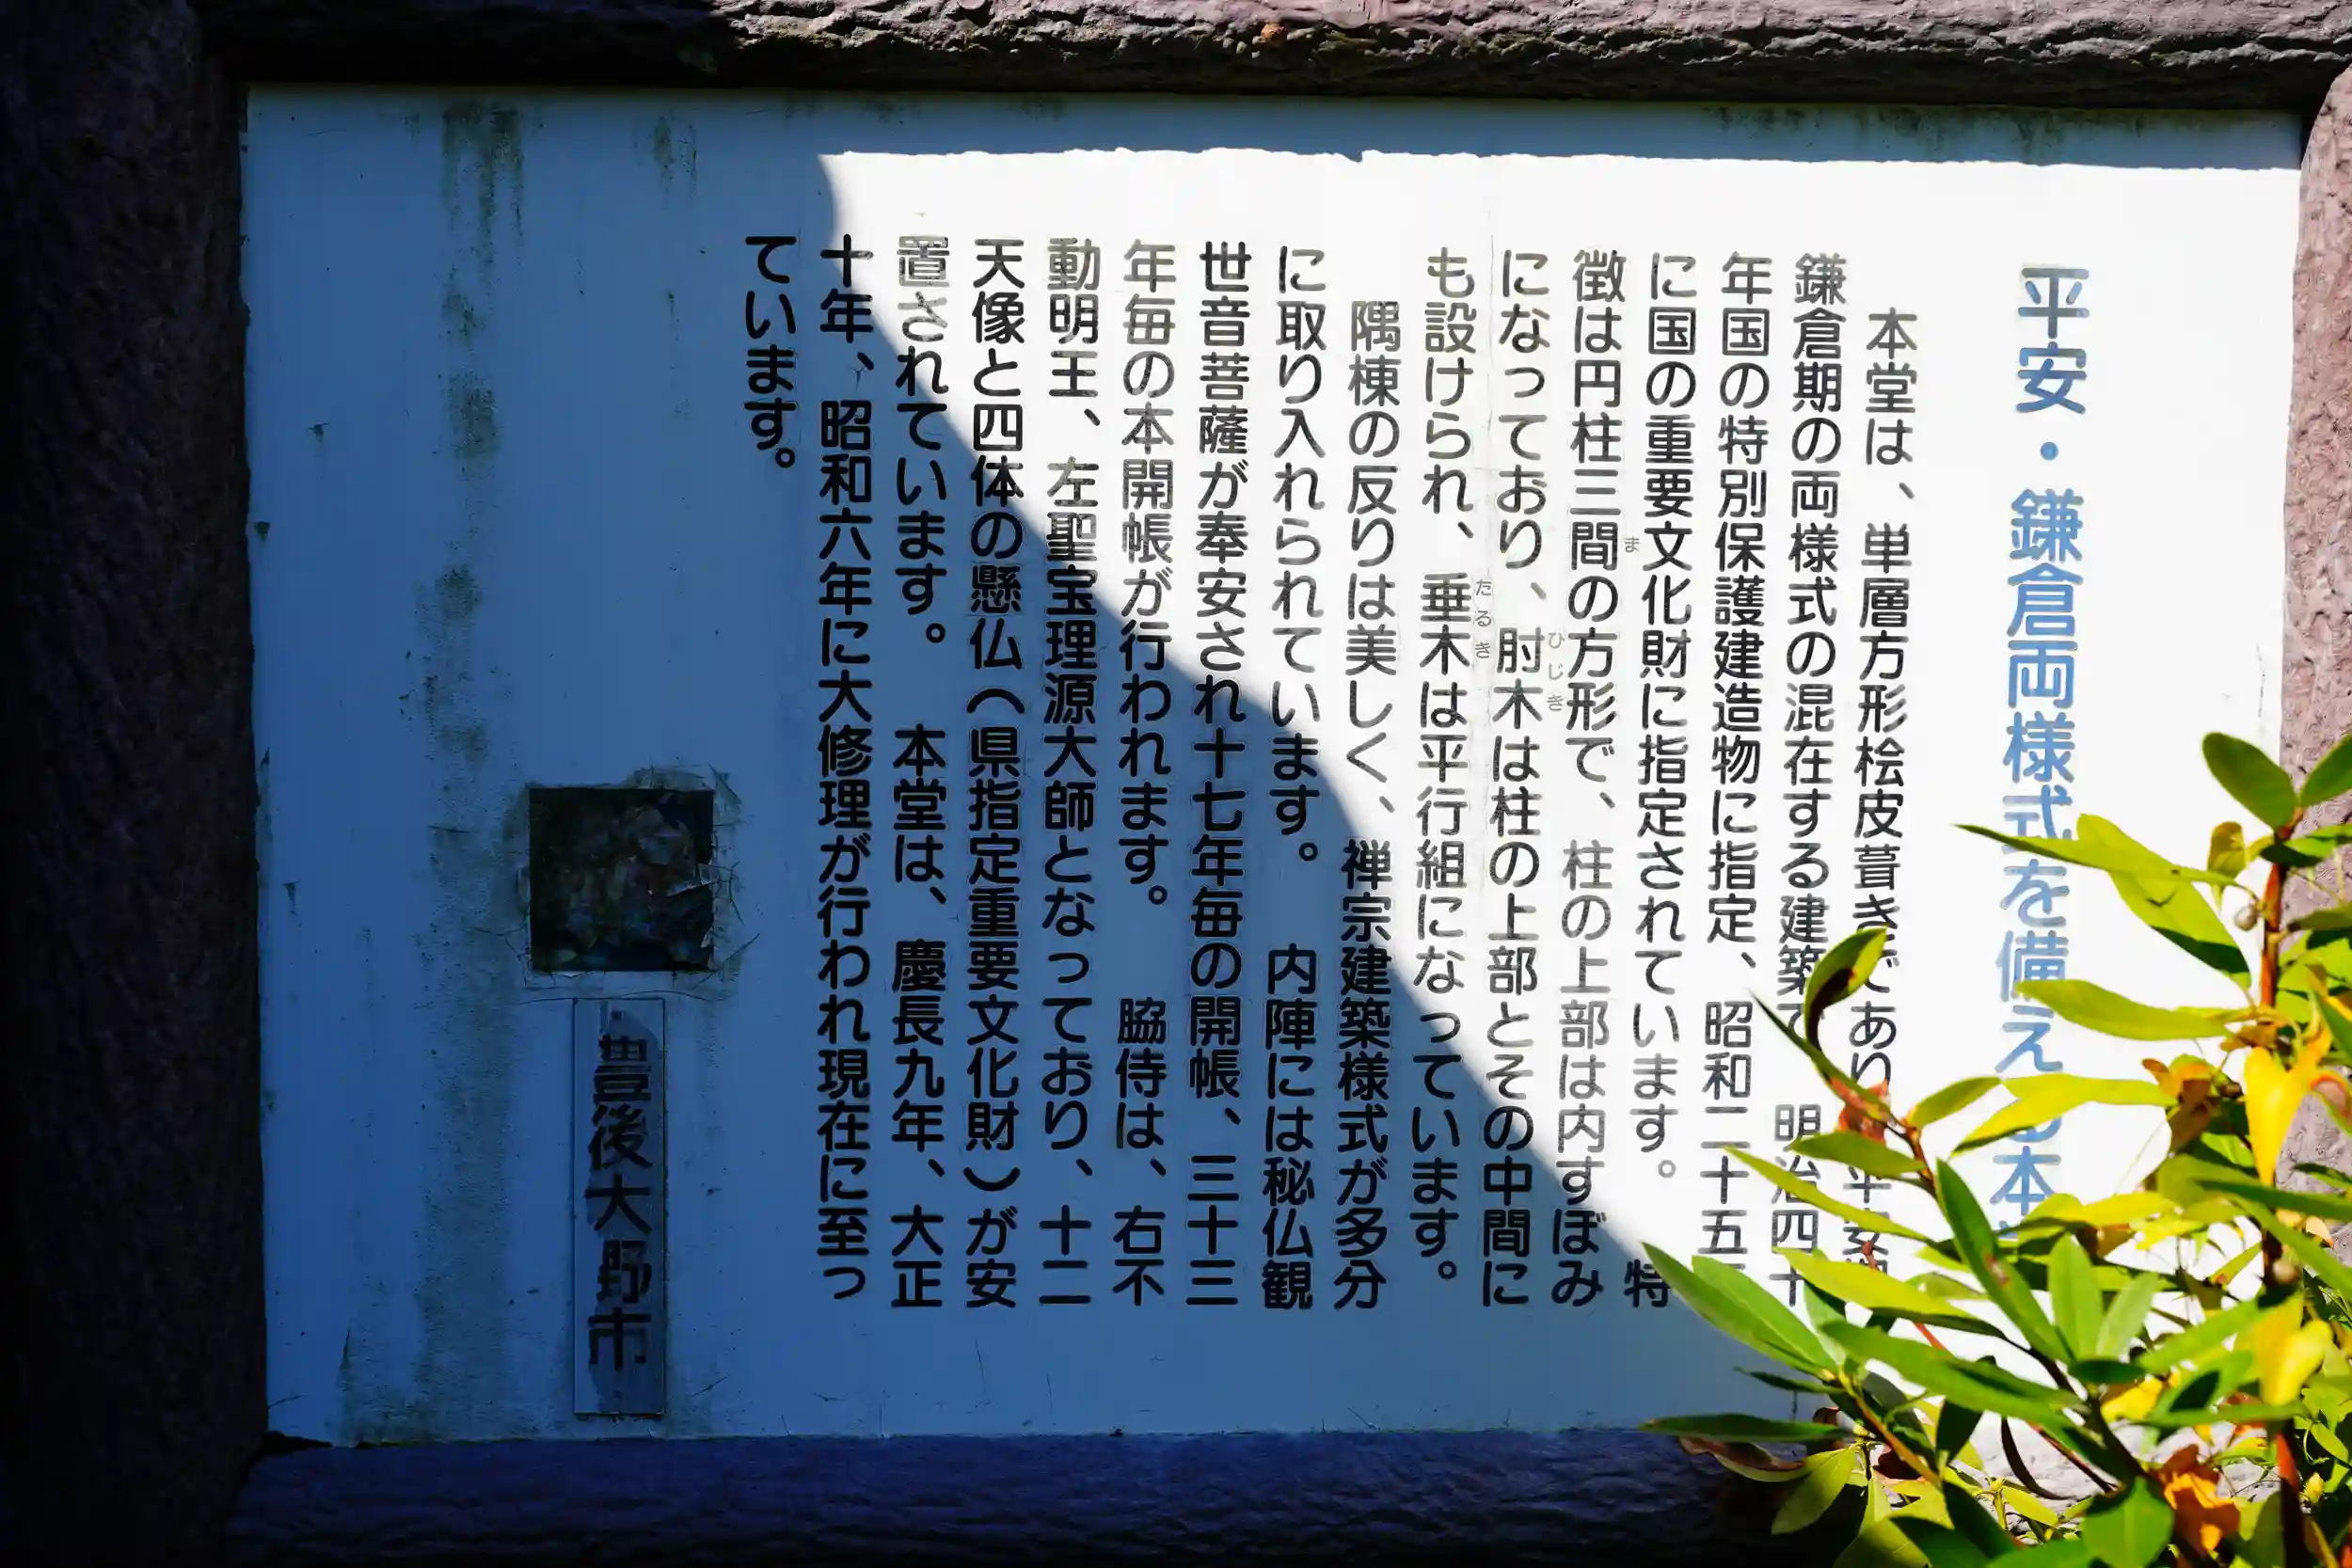 平安・鎌倉両様式を備える本
本堂は、単層方形桧皮葺きであり 平安
鎌倉期の両様式の混在する建築で 明治四十
年国の特別保護建造物に指定、昭和二十五
に国の重要文化財に指定されています。 特
徴は円柱三間の方形で、柱の上部は内すぼみ
ま
になっており、肘木は柱の上部とその中間に
ひじき
も設けられ、垂木は平行組になっています。
たるき
隅棟の反りは美しく、禅宗建築様式が多分
に取り入れられています。 内陣には秘仏観
世音菩薩が奉安され十七年毎の開帳、三十三
年毎の本開帳が行われます。 脇侍は、右不
動明王、左聖宝理源大師となっており、十二
天像と四体の懸仏(県指定重要文化財)が安
置されています。 本堂は、慶長九年、大正
十年、昭和六年に大修理が行われ現在に至っ
ています。
豊後大野市